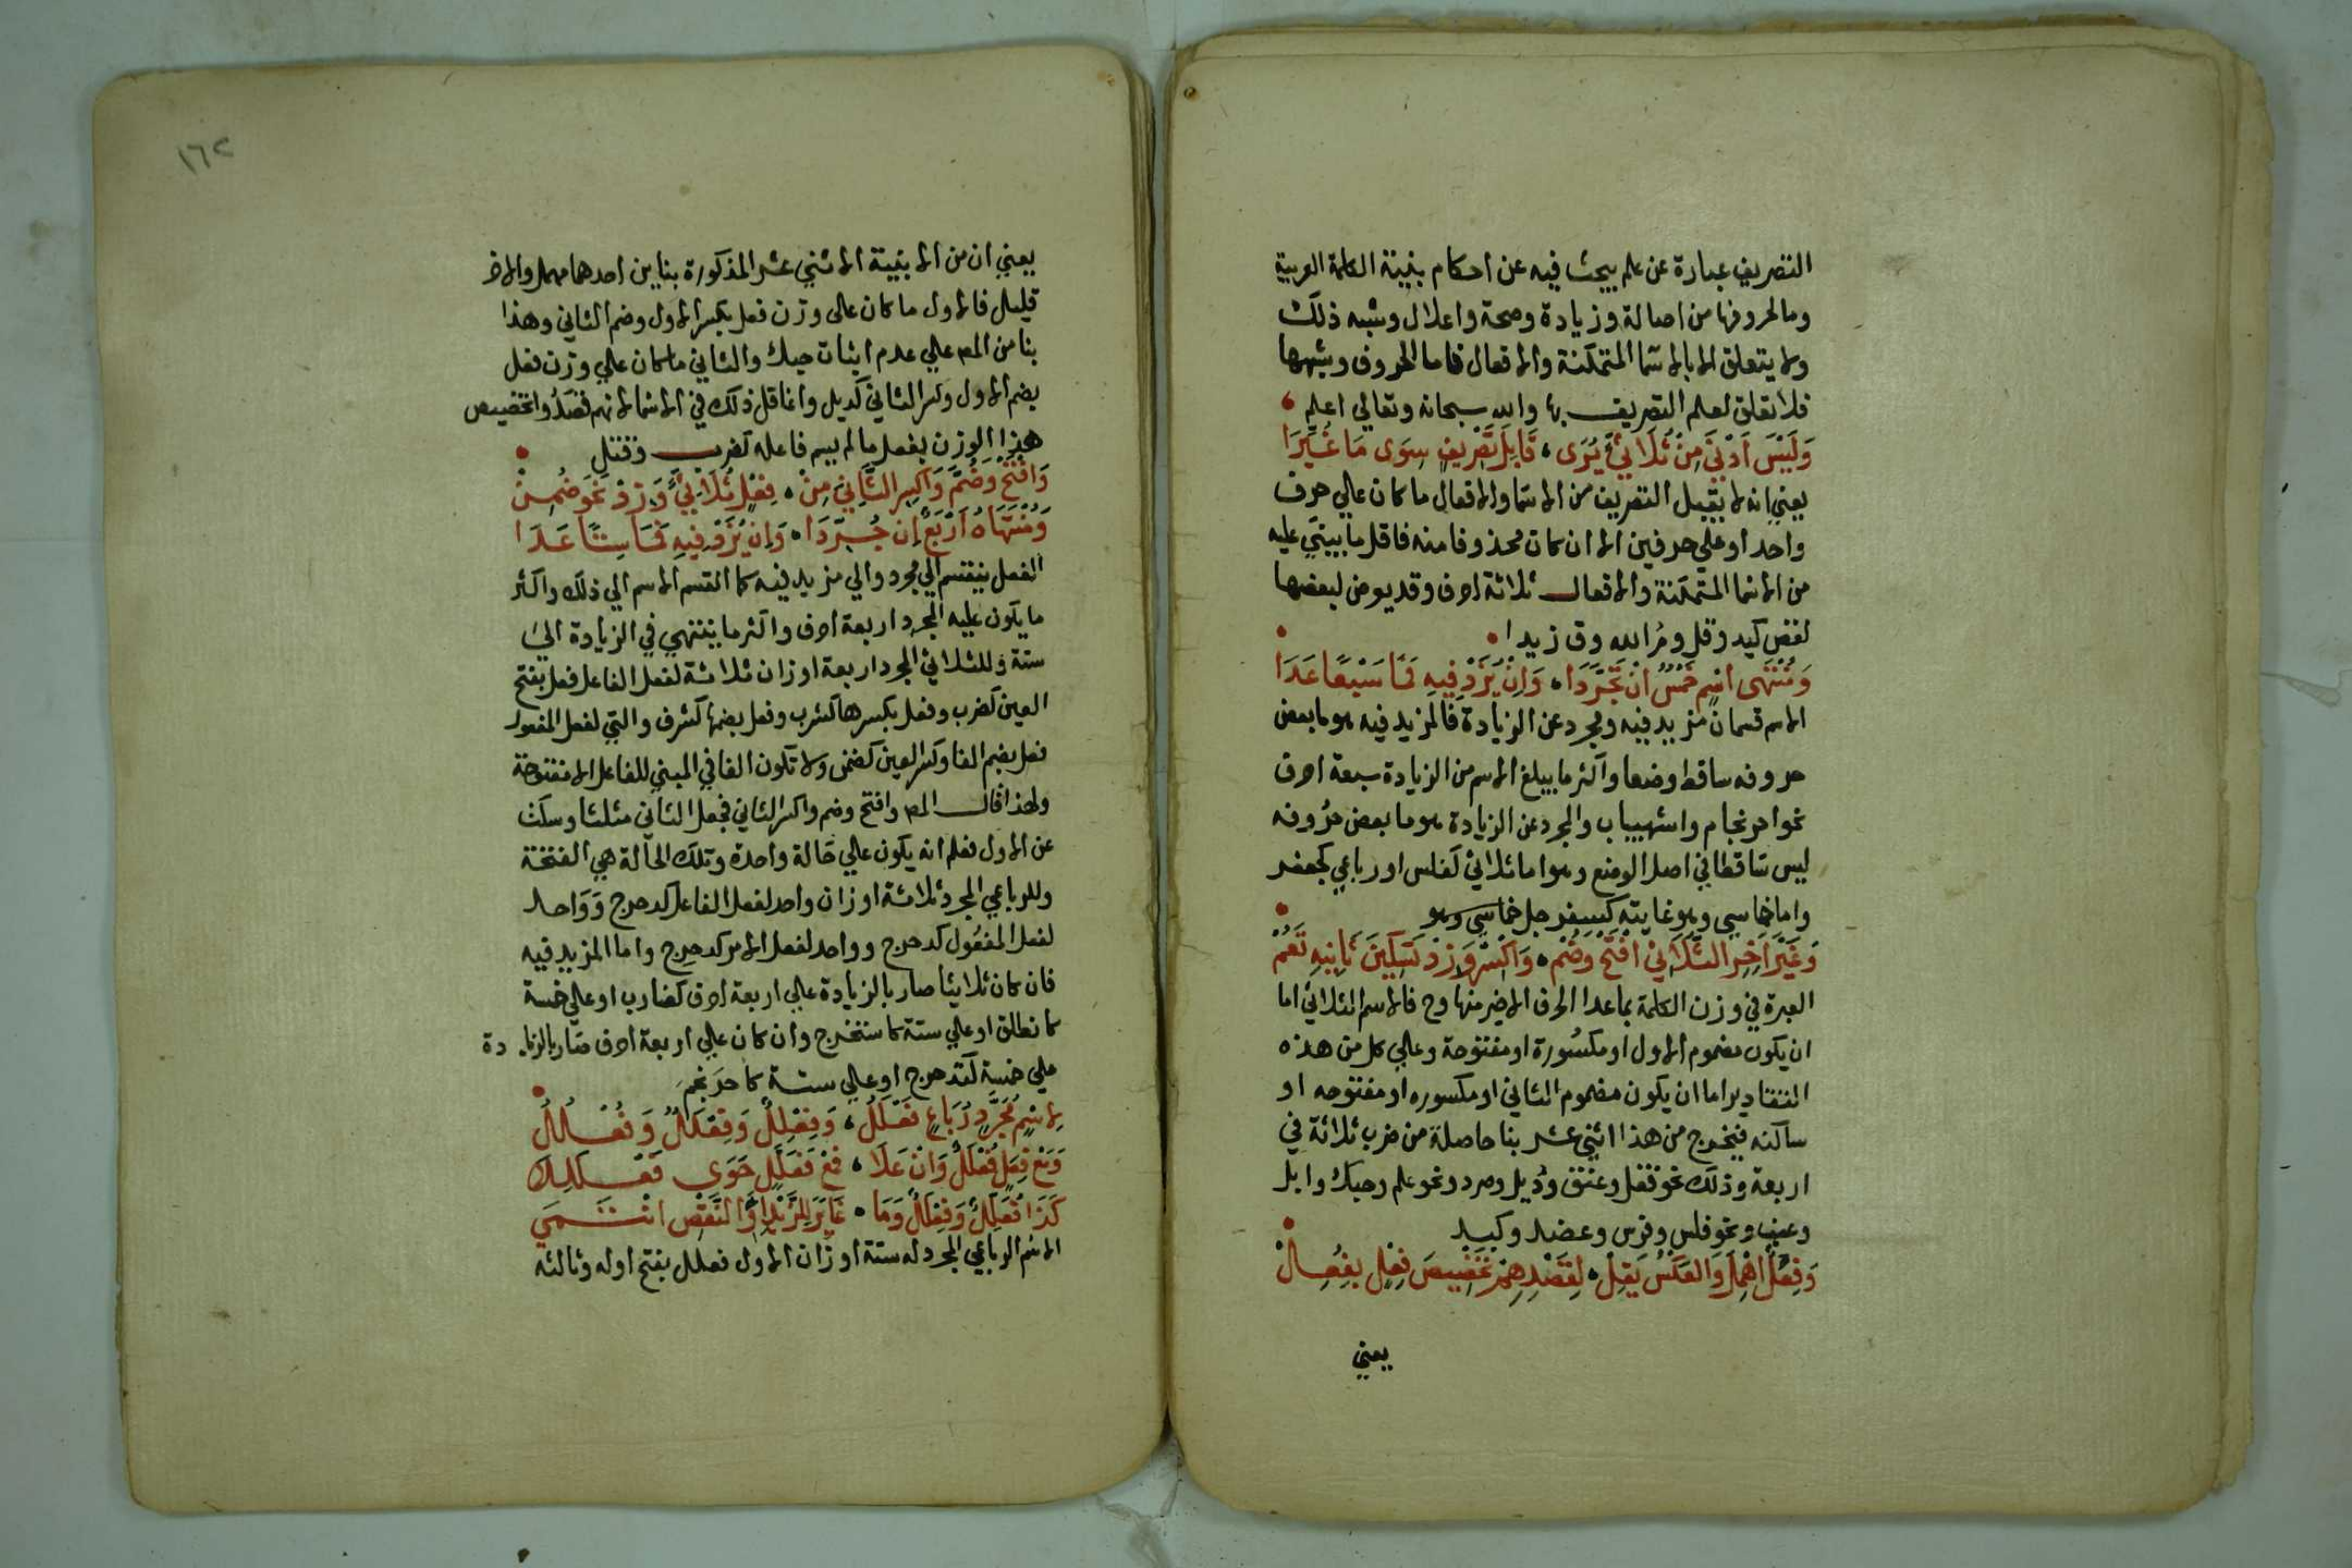 التصريف عبارة عن علم يبحث فيه عن احكام بنية الكلمة العربية
وما لحروفها من اصالة وزيادة وصحة واعلال وشبه ذلك
ولا يتعلق الا بالاسما المتمكنة والافعال فاما الحروف وشبهها
فلا تعلق لعلم التصريف بها والله سبحانه وتعالي اعلم
وَلَيْسَ اَدْنَي مِنْ ثُلَاثِيٍّ يُرَى، قَابِلَ تَصْرِيفٍ سِوَى مَا غُيِّرَا
يعني انه لا يقبل التصريف من الاسما والافعال ما كان علي حرف
واحد او علي حرفين الا ان كان محذوفا منه فاقل ما يبني عليه
من الاسما المتمكنة والافعال ثلاثة احرف وقد يعرض لبعضها
نقص كيد وقل ومُ الله وق زيدا
وَمُنْتَهَى اسْمٍ خَمْسٌ اِنْ تَجَرَّدَا، وَاِنْ يُزَدْ فِيهِ فَمَا سَبْعًا عَدَا
الاسم قسمان مزيد فيه ومجرد عن الزيادة فالمزيد فيه هو ما بعض
حروفه ساقط وضعا واكثر ما يبلغ الاسم من الزيادة سبعة احرف
نحو احرنجام واشهيباب والمجرد عن الزيادة هو ما بعض حروفه
ليس ساقطا في اصل الوضع وهو اما ثلاثي كفلس او رباعي كجعفر
واما خماسي وهو غايته كسفرجل خماسي وهو
وَغَيْرَ اَخِرِ الثُّلَاثِيْ افْتَحْ وَضُمْ، وَاكْسِرْ وَزِدْ تَسْكِينَ ثَانِيهِ تَعُمْ
العبرة في وزن الكلمة بما عدا الحرف الاخير منها وح فالاسم الثلاثي اما
ان يكون مضموم الاول او مكسورة او مفتوحة وعلي كل من هذه
التقادير اما ان يكون مضموم الثاني او مكسوره او مفتوحه او
ساكنه فيخرج من هذا اثني عشر بنا حاصلة من ضرب ثلاثة في
اربعة وذلك نحو قفل وعنق ودُيل وصرد ونحو علم وحبك وابل
وعنب ونحو فلس وفرس وعضد وكبد
وَفِعُلٌ اُهْمِلَ وَالعَكْسُ يَقِلْ، لِقَصْدِهِمْ تَخْصِيصَ فِعْلٍ بِفُعِلْ
يعني
١٦٢
يعني ان من الابنية الاثني عشر المذكورة بناين احدهما مهمل والاخر
قليل فالاول ما كان علي وزن فعل بكسر الاول وضم الثاني وهذا
بنا من المص علي عدم اثبات حبك والثاني ما كان علي وزن فعل
بضم الاول وكسر الثاني كديل وانما قل ذلك في الاسما لانهم قصدوا تخصيص
هذا الوزن بفعل ما لم يسم فاعله كضرب وقتل
وَافْتَحْ وَضُمَّ وَاكْسِرِ الثَّانِيَ مِنْ، فِعْلٍ ثُلَاثِيٍّ وَزِدْ نَحْوَ ضُمِنْ
وَمُنْتَهَاهُ اَرْبَعٌ اِنْ جُرِّدَا، وَاِنْ يُزَدْ فِيهِ فَمَا سِتًّا عَدَا
الفعل ينقسم الي مجرد والي مزيد فيه كما انقسم الاسم الي ذلك واكثر
ما يكون عليه المجرد اربعة احرف واكثر ما ينتهي في الزيادة الي
ستة وللثلاثي المجرد اربعة اوزان ثلاثة لفعل الفاعل فعل بفتح
العين كضرب وفعل بكسرها كشرب وفعل بضمها كشرف والتي لفعل المفعول
فعل بضم الفا وكسر العين كضمن ولا تكون الفا في المبني للفاعل الا مفتوحة
ولهذا قال المص وافتح وضم واكسر الثاني فجعل الثاني مثلثا وسكت
عن الاول فعلم انه يكون علي حالة واحدة وتلك الحالة هي الفتحة
وللرباعي المجرد ثلاثة اوزان واحد لفعل الفاعل كدحرج وَوَاحد
لفعل المفعول كدحرج وواحد لفعل الامر كدحرج واما المزيد فيه
فان كان ثلاثيا صار بالزيادة علي اربعة احرف كضارب او علي خمسة
كانطلق او علي ستة كاستخرج وان كان علي اربعة احرف صار بالزيادة
علي خمسة كتدحرج او علي ستة كاحرَنجمَ
لِاسْمٍ مُجَرَّدٍ رُبَاعٍ فَعْلَلُ، وَفِعْلِلٌ وَفِعْلَلٌ وَفُعْلُلُ
وَمَعْ فِعَلٍّ فُعْلَلٌ وَاِنْ عَلَا، فَمَعْ فَعَلَّلٍ حَوَى فَعْلَلِلَا
كَذَا فُعَلِّلٌ وَفِعْلَلٌّ وَمَا، غَايَرَ لِلزَّيْدِ اَوِ النَّقْصِ انْتَمَي
الاسم الرباعي المجرد له ستة اوزان الاول فعلل بفتح اوله وثالثه